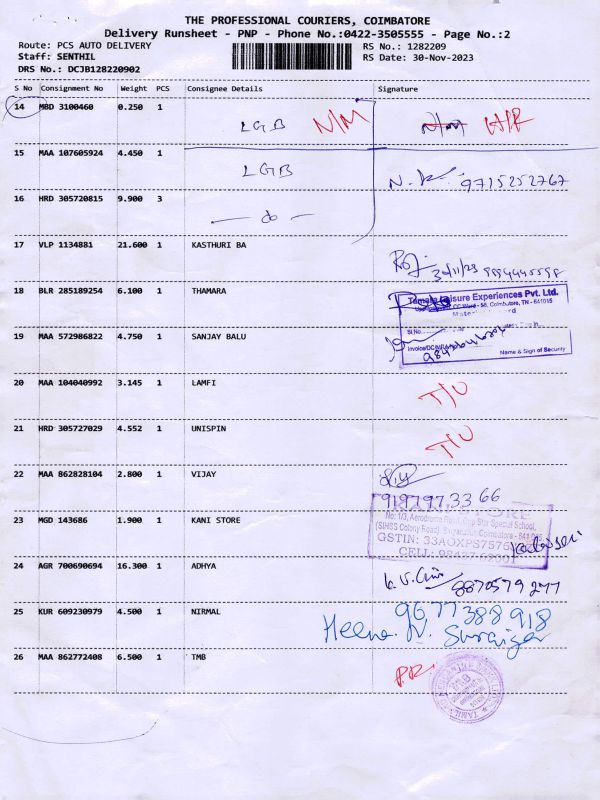 THE PROFESSIONAL COURIERS, COIMBATORE
Delivery Runsheet - PNP - Phone No.:0422-3505555 - Page No.:2
Route: PCS AUTO DELIVERY
RS No.: 1282209
Staff: SENTHIL
RS Date: 30-Nov-2023
DRS No.: DCJB128220902
S No Consignment No Weight PCS Consignee Details Signature
14 MBD 3100460 0.250 1 LGB N/M
15 MAA 107605924 4.450 1 LGB 9715252767
16 HRD 305720815 9.900 3 — do —
17 VLP 1134881 21.600 1 KASTHURI BA
30/11/23
18 BLR 285189254 6.100 1 THAMARA
Leisure Experiences Pvt. Ltd.
Coimbatore, TN - 641015
19 MAA 572986822 4.750 1 SANJAY BALU
Name & Sign of Security
20 MAA 104040992 3.145 1 LAMFI T/U
21 HRD 305727029 4.552 1 UNISPIN T/U
22 MAA 862828104 2.800 1 VIJAY
9197973366
23 MGD 143686 1.900 1 KANI STORE
STORE
No: 1/3, Aerodrome Road, Opp Star Special School,
(SIHSS Colony Road)
GSTIN: 33AOXPS7576
CELL: 98427
24 AGR 700690694 16.300 1 ADHYA
8870579277
25 KUR 609230979 4.500 1 NIRMAL
9677388918
Heena. N.
26 MAA 862772408 6.500 1 TMB